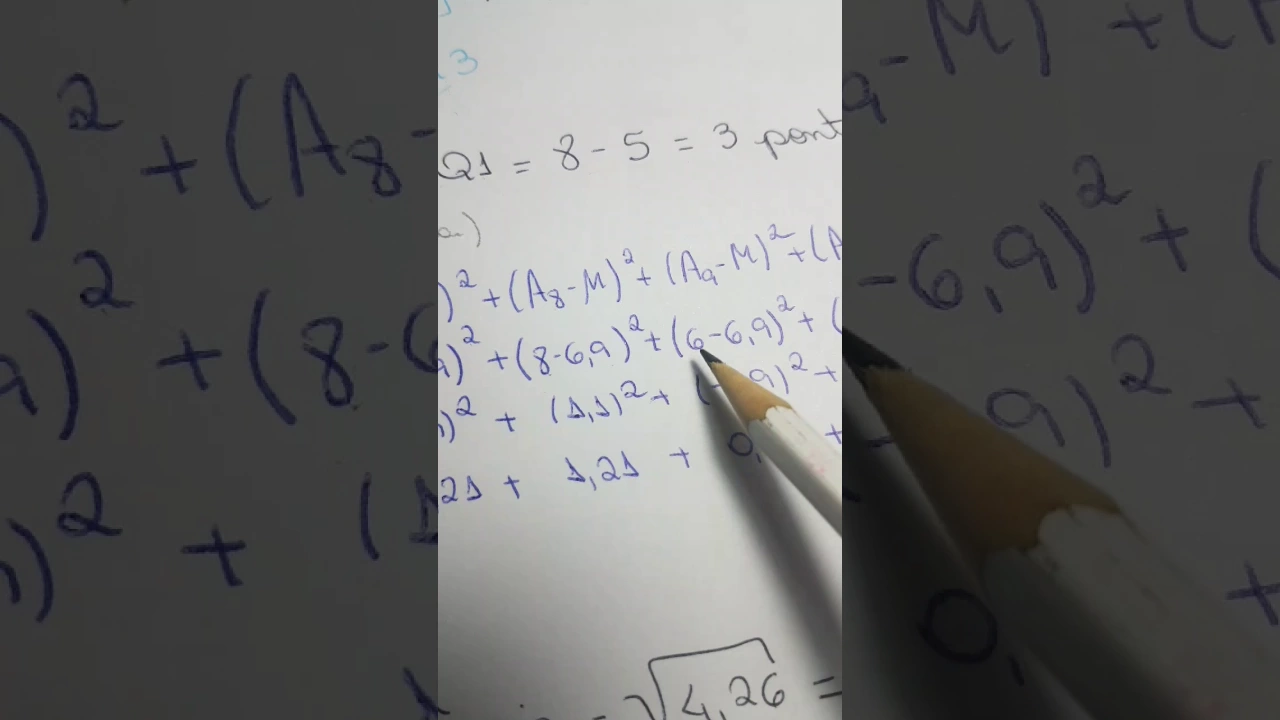 3
Q1 = 8 - 5 = 3 pont
a)
)² + (A8 - M)² + (A9 - M)² + (A
9)² + (8 - 6,9)² + (6 - 6,9)² + (
)² + (1,1)² + (- 9)² +
21 + 1,21 + 0, +
√4,26 =